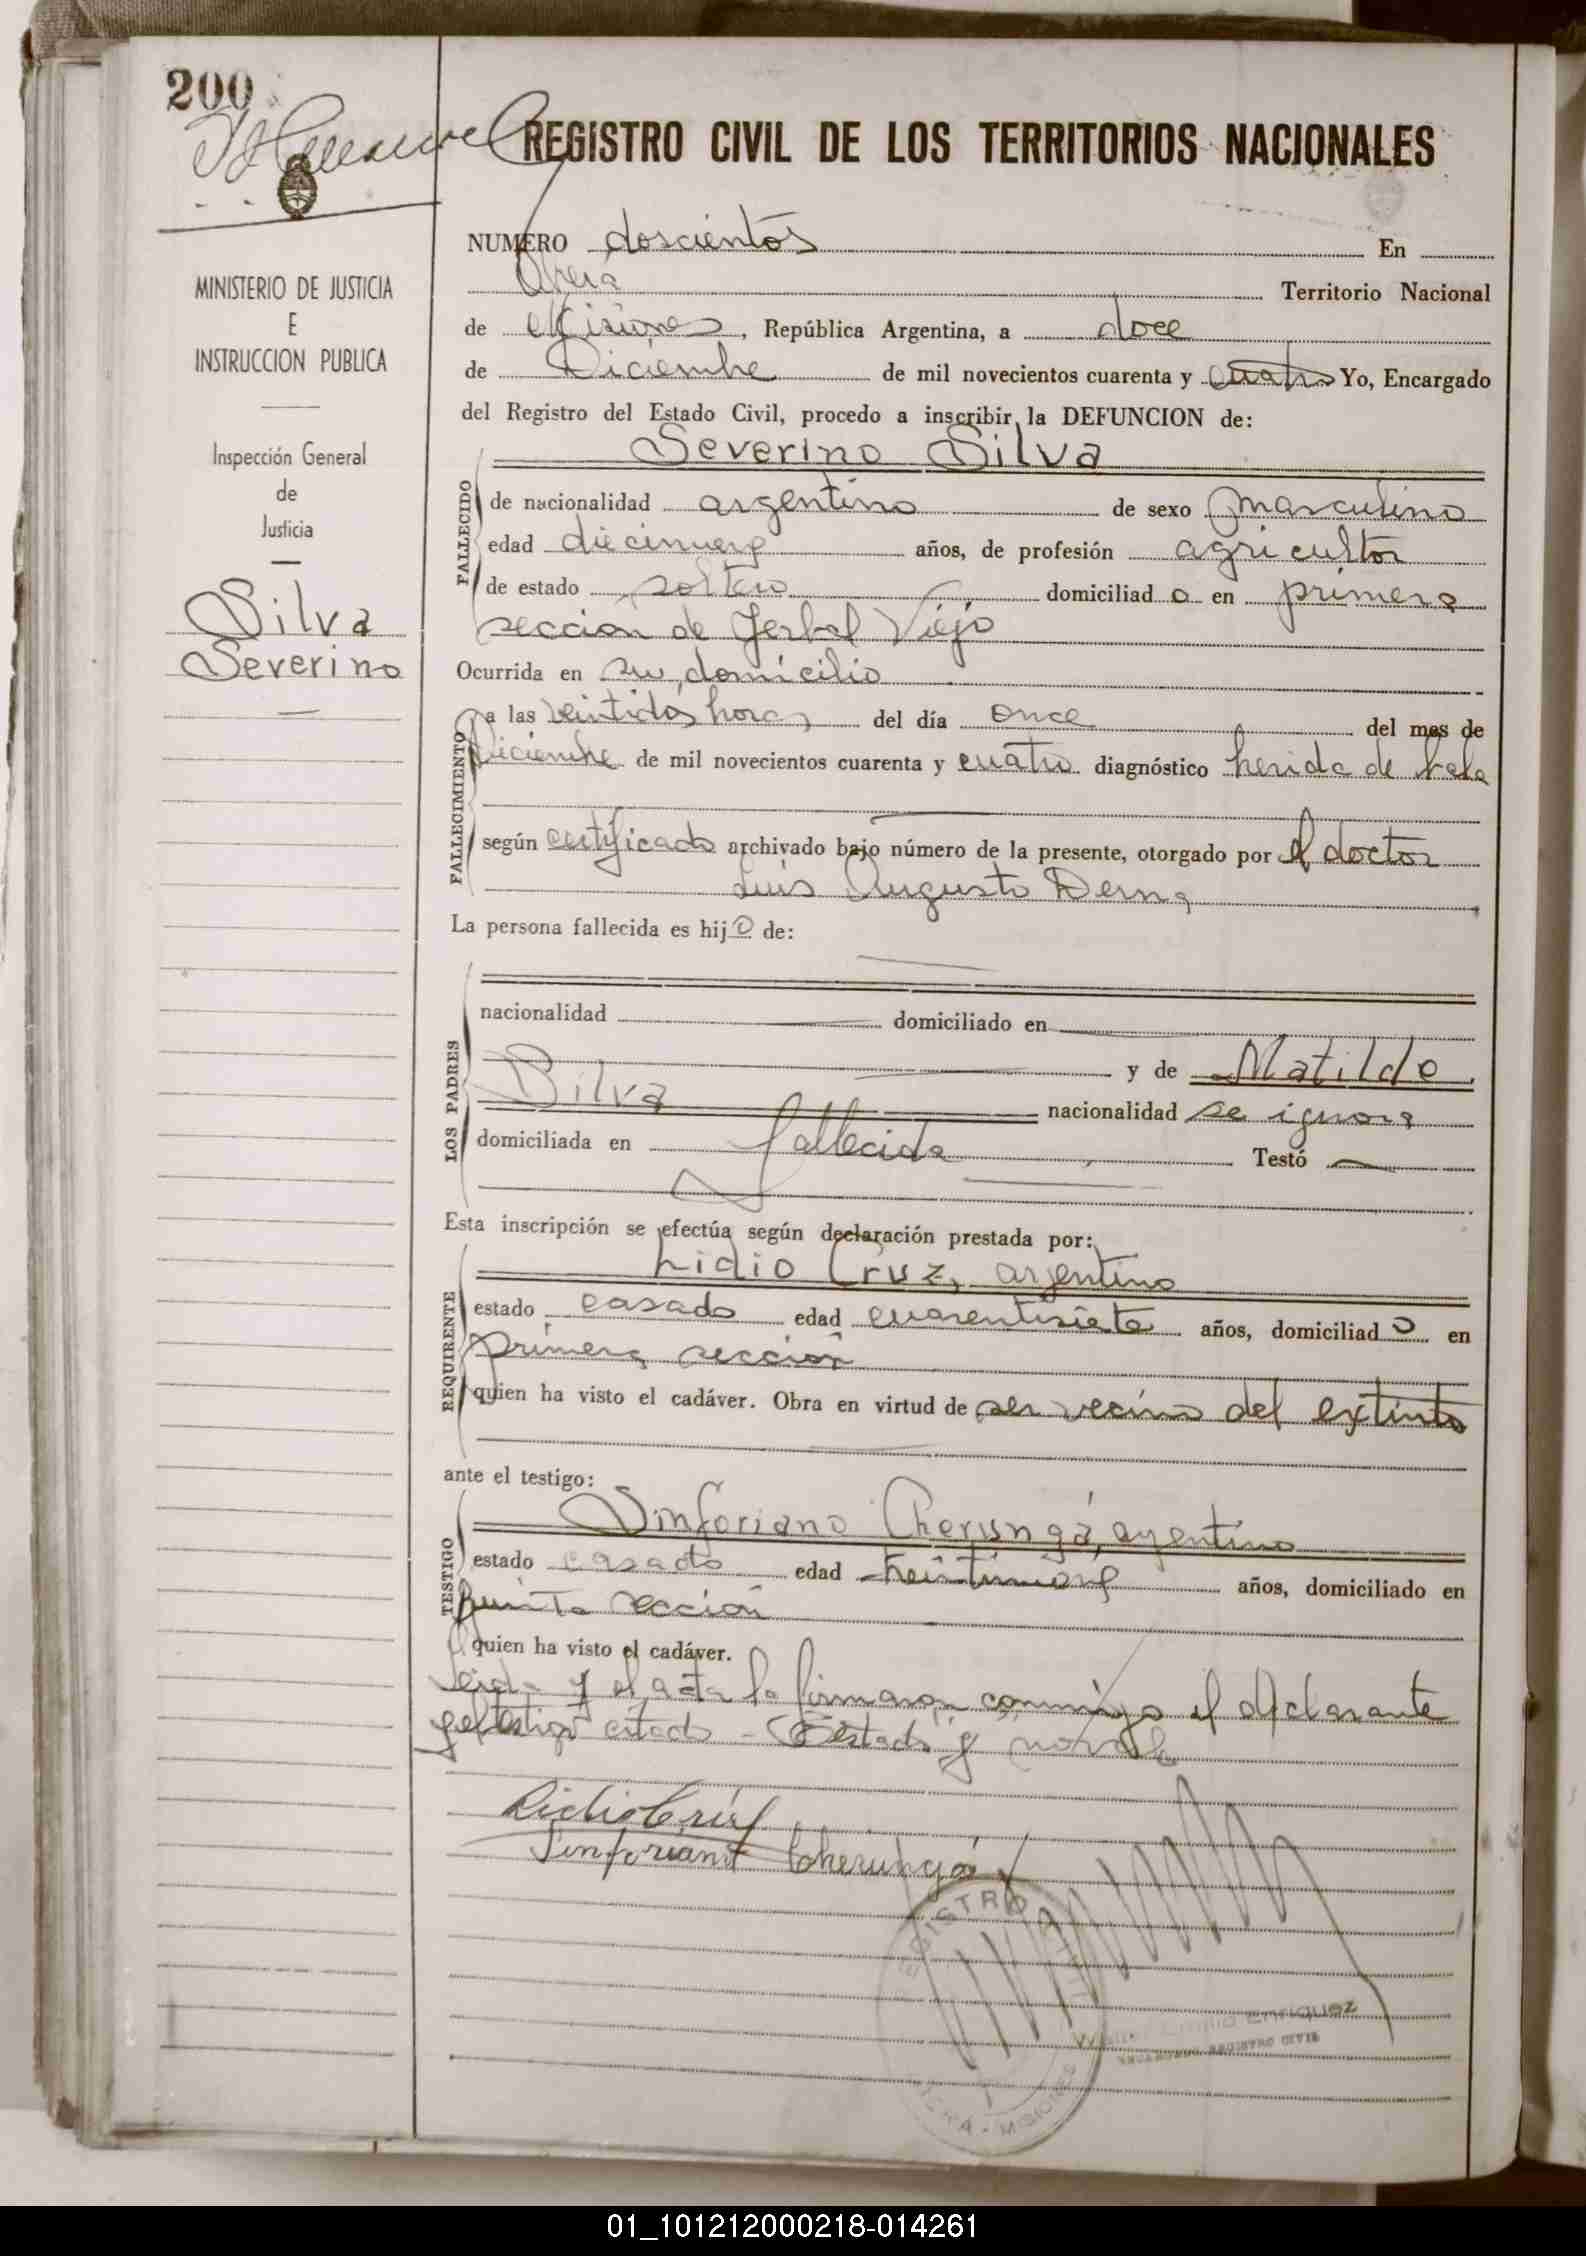 200
REGISTRO CIVIL DE LOS TERRITORIOS NACIONALES
MINISTERIO DE JUSTICIA
E
INSTRUCCION PUBLICA
Inspección General
de
Justicia
Silva
Severino
NUMERO doscientos En
Oberá Territorio Nacional
de Misiones, República Argentina, a doce
de Diciembre de mil novecientos cuarenta y cuatro Yo, Encargado
del Registro del Estado Civil, procedo a inscribir la DEFUNCION de:
Severino Silva
FALLECIDO
de nacionalidad argentino de sexo masculino
edad diecinueve años, de profesión agricultor
de estado soltero domiciliad o en primera
seccion de Yerbal Viejo
Ocurrida en su domicilio
FALLECIMIENTO
a las veintidos horas del día once del mes de
Diciembre de mil novecientos cuarenta y cuatro diagnóstico herida de bala
según certificado archivado bajo número de la presente, otorgado por el doctor
Luis Augusto Derna
La persona fallecida es hijo de:
LOS PADRES
nacionalidad domiciliado en
y de Matilde
Silva nacionalidad se ignora
domiciliada en fallecida Testó
Esta inscripción se efectúa según declaración prestada por:
Lidio Cruz, argentino
REQUIRENTE
estado casado edad cuarentisiete años, domiciliad o en
primera sección
quien ha visto el cadáver. Obra en virtud de ser vecino del extinto
ante el testigo:
Sinforiano Cherungá, argentino
TESTIGO
estado casado edad treintinueve años, domiciliado en
quinta sección
quien ha visto el cadáver.
Leida y el acta la firmaron conmigo el declarante
y el testigo citado -
Lidio Cruz
Sinforiano Cherungá
REGISTRO CIVIL
MISIONES
Emilio Enriquez
ENCARGADO REGISTRO CIVIL
01_101212000218-014261